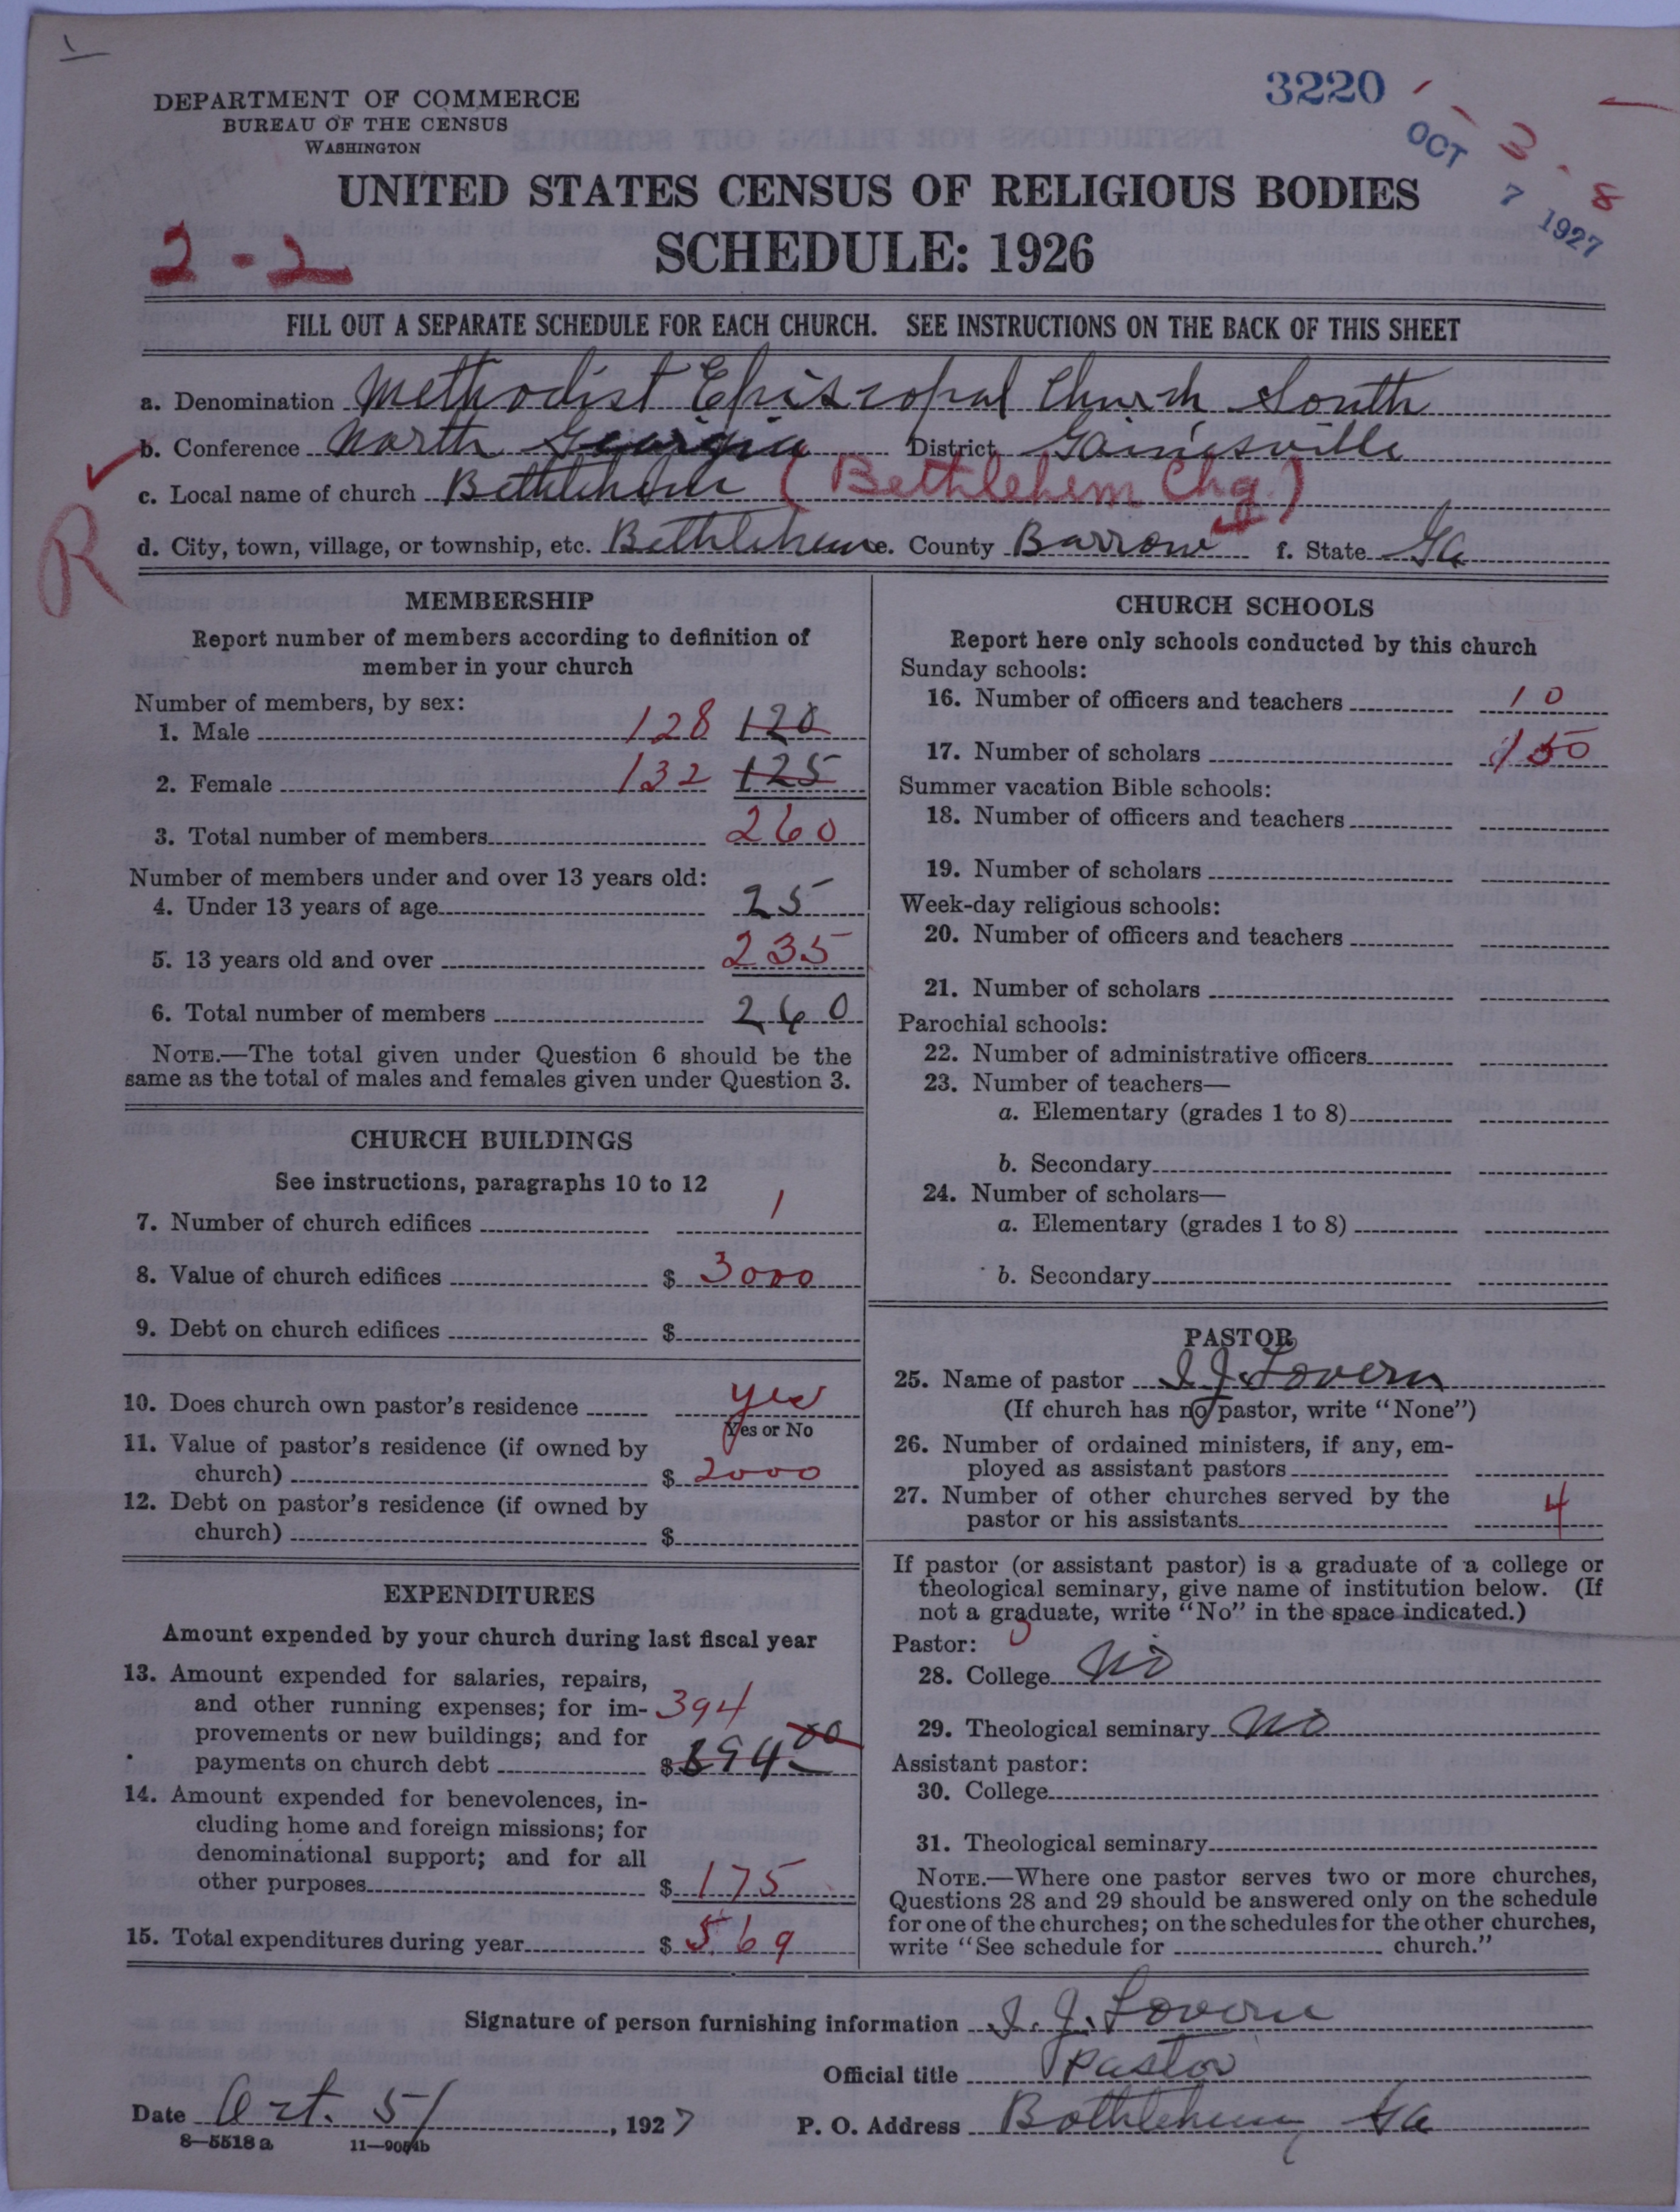 3220
DEPARTMENT OF COMMERCE
BUREAU OF THE CENSUS
WASHINGTON
OCT 7 1927
3 - 8
UNITED STATES CENSUS OF RELIGIOUS BODIES
2-2
SCHEDULE: 1926
FILL OUT A SEPARATE SCHEDULE FOR EACH CHURCH. SEE INSTRUCTIONS ON THE BACK OF THIS SHEET
a. Denomination Methodist Episcopal Church South
b. Conference North Georgia District Gainesville
c. Local name of church Bethlehem (Bethlehem Chg)
R
d. City, town, village, or township, etc. Bethlehem e. County Barrow f. State Ga
MEMBERSHIP
Report number of members according to definition of
member in your church
Number of members, by sex:
1. Male 128 120
2. Female 132 125
3. Total number of members 260
Number of members under and over 13 years old:
4. Under 13 years of age 25
5. 13 years old and over 235
6. Total number of members 260
NOTE.—The total given under Question 6 should be the
same as the total of males and females given under Question 3.
CHURCH BUILDINGS
See instructions, paragraphs 10 to 12
7. Number of church edifices 1
8. Value of church edifices $ 3000
9. Debt on church edifices $
10. Does church own pastor's residence yes
Yes or No
11. Value of pastor's residence (if owned by
church) $ 2000
12. Debt on pastor's residence (if owned by
church) $
EXPENDITURES
Amount expended by your church during last fiscal year
13. Amount expended for salaries, repairs,
and other running expenses; for im- 394
provements or new buildings; and for
payments on church debt $ 894 00
14. Amount expended for benevolences, in-
cluding home and foreign missions; for
denominational support; and for all
other purposes $ 175
15. Total expenditures during year $ 569
CHURCH SCHOOLS
Report here only schools conducted by this church
Sunday schools:
16. Number of officers and teachers 10
17. Number of scholars 150
Summer vacation Bible schools:
18. Number of officers and teachers
19. Number of scholars
Week-day religious schools:
20. Number of officers and teachers
21. Number of scholars
Parochial schools:
22. Number of administrative officers
23. Number of teachers—
a. Elementary (grades 1 to 8)
b. Secondary
24. Number of scholars—
a. Elementary (grades 1 to 8)
b. Secondary
PASTOR
25. Name of pastor I. J. Lovern
(If church has no pastor, write "None")
26. Number of ordained ministers, if any, em-
ployed as assistant pastors
27. Number of other churches served by the
pastor or his assistants 4
If pastor (or assistant pastor) is a graduate of a college or
theological seminary, give name of institution below. (If
not a graduate, write "No" in the space indicated.)
Pastor:
28. College No
29. Theological seminary No
Assistant pastor:
30. College
31. Theological seminary
NOTE.—Where one pastor serves two or more churches,
Questions 28 and 29 should be answered only on the schedule
for one of the churches; on the schedules for the other churches,
write "See schedule for church."
Signature of person furnishing information I. J. Lovern
Official title Pastor
Date Oct. 5/, 1927 P. O. Address Bethlehem, Ga
8—5518 a 11—9054b